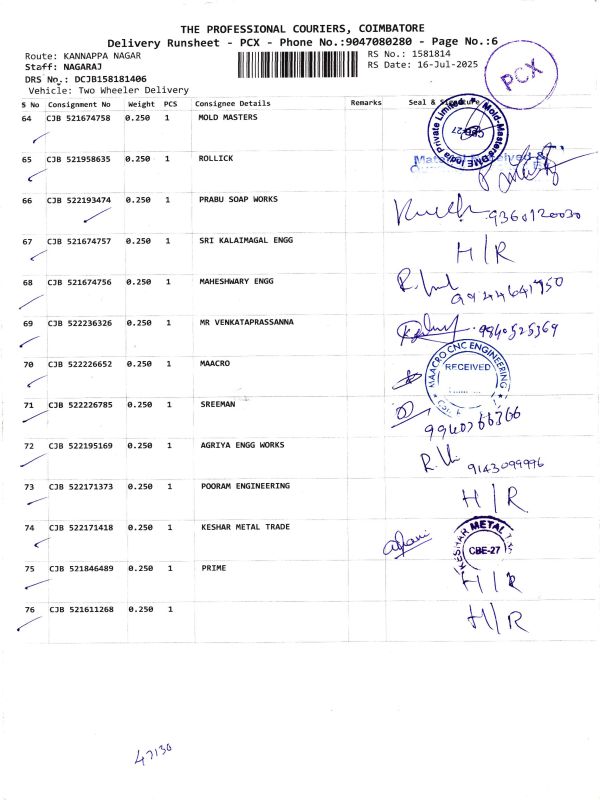 THE PROFESSIONAL COURIERS, COIMBATORE
Delivery Runsheet - PCX - Phone No.:9047080280 - Page No.:6
Route: KANNAPPA NAGAR RS No.: 1581814
Staff: NAGARAJ RS Date: 16-Jul-2025
DRS No.: DCJB158181406
Vehicle: Two Wheeler Delivery
PCX
S No Consignment No Weight PCS Consignee Details Remarks Seal & Signature
64 CJB 521674758 0.250 1 MOLD MASTERS
Mold-Masters DME India Private Limited
65 CJB 521958635 0.250 1 ROLLICK
66 CJB 522193474 0.250 1 PRABU SOAP WORKS 9360120030
67 CJB 521674757 0.250 1 SRI KALAIMAGAL ENGG H/R
68 CJB 521674756 0.250 1 MAHESHWARY ENGG 9944641750
69 CJB 522236326 0.250 1 MR VENKATAPRASSANNA 9840525369
70 CJB 522226652 0.250 1 MAACRO
MAACRO CNC ENGINEERING
RECEIVED
71 CJB 522226785 0.250 1 SREEMAN
72 CJB 522195169 0.250 1 AGRIYA ENGG WORKS 9143099996
73 CJB 522171373 0.250 1 POORAM ENGINEERING H/R
74 CJB 522171418 0.250 1 KESHAR METAL TRADE
KESHAR METAL
CBE-27
75 CJB 521846489 0.250 1 PRIME H/R
76 CJB 521611268 0.250 1 H/R
47130